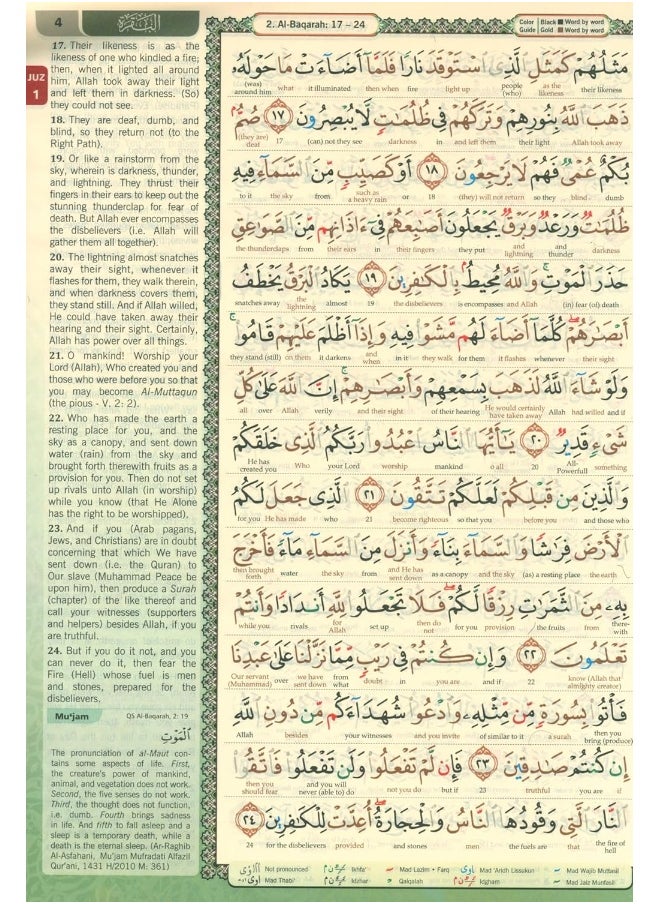 4
البقرة
2. Al-Baqarah: 17 – 24
Color Black ■ Word by word
Guide Gold ■ Word by word
JUZ
1
17. Their likeness is as the
likeness of one who kindled a fire;
then, when it lighted all around
him, Allah took away their light
and left them in darkness. (So)
they could not see.
18. They are deaf, dumb, and
blind, so they return not (to the
Right Path).
19. Or like a rainstorm from the
sky, wherein is darkness, thunder,
and lightning. They thrust their
fingers in their ears to keep out the
stunning thunderclap for fear of
death. But Allah ever encompasses
the disbelievers (i.e. Allah will
gather them all together).
20. The lightning almost snatches
away their sight, whenever it
flashes for them, they walk therein,
and when darkness covers them,
they stand still. And if Allah willed,
He could have taken away their
hearing and their sight. Certainly,
Allah has power over all things.
21. O mankind! Worship your
Lord (Allah), Who created you and
those who were before you so that
you may become Al-Muttaqun
(the pious - V. 2: 2).
22. Who has made the earth a
resting place for you, and the
sky as a canopy, and sent down
water (rain) from the sky and
brought forth therewith fruits as a
provision for you. Then do not set
up rivals unto Allah (in worship)
while you know (that He Alone
has the right to be worshipped).
23. And if you (Arab pagans,
Jews, and Christians) are in doubt
concerning that which We have
sent down (i.e. the Quran) to
Our slave (Muhammad Peace be
upon him), then produce a Surah
(chapter) of the like thereof and
call your witnesses (supporters
and helpers) besides Allah, if you
are truthful.
24. But if you do it not, and you
can never do it, then fear the
Fire (Hell) whose fuel is men
and stones, prepared for the
disbelievers.
Mu'jam QS Al-Baqarah, 2: 19
الْمَوْتِ
The pronunciation of al-Maut con-
tains some aspects of life. First,
the creature's power of mankind,
animal, and vegetation does not work.
Second, the five senses do not work.
Third, the thought does not function,
i.e. dumb. Fourth brings sadness
in life. And fifth to fall asleep and a
sleep is a temporary death, while a
death is the eternal sleep. (Ar-Raghib
Al-Asfahani, Mu'jam Mufradati Alfazil
Qur'ani, 1431 H/2010 M: 361)
مَثَلُهُمْ كَمَثَلِ الَّذِى اسْتَوْقَدَ نَارًا فَلَمَّآ اَضَاۤءَتْ مَا حَوْلَهٗ
(was) around him what it illuminated then when fire light up people (who) as the likeness their likeness
ذَهَبَ اللّٰهُ بِنُوْرِهِمْ وَتَرَكَهُمْ فِيْ ظُلُمٰتٍ لَّا يُبْصِرُوْنَ ١٧ صُمٌّۢ
(they are) deaf 17 (can) not they see darkness in and left them their light Allah took away
بُكْمٌ عُمْيٌ فَهُمْ لَا يَرْجِعُوْنَ ١٨ اَوْ كَصَيِّبٍ مِّنَ السَّمَاۤءِ فِيْهِ
to it the sky from such as a heavy rain or 18 (they) will not return so they blind dumb
ظُلُمٰتٌ وَّرَعْدٌ وَّبَرْقٌ يَجْعَلُوْنَ اَصَابِعَهُمْ فِيْٓ اٰذَانِهِمْ مِّنَ الصَّوَاعِقِ
the thunderclaps from their ears in their fingers they put and lightning and thunder darkness
حَذَرَ الْمَوْتِ وَاللّٰهُ مُحِيْطٌۢ بِالْكٰفِرِيْنَ ١٩ يَكَادُ الْبَرْقُ يَخْطَفُ
snatches away the lightning almost 19 the disbelievers is encompasses and Allah (in) fear (of) death
اَبْصَارَهُمْ كُلَّمَآ اَضَاۤءَ لَهُمْ مَّشَوْا فِيْهِ وَاِذَآ اَظْلَمَ عَلَيْهِمْ قَامُوْا
they stand (still) on them it darkens and when in it they walk for them it flashes whenever their sight
وَلَوْ شَاۤءَ اللّٰهُ لَذَهَبَ بِسَمْعِهِمْ وَاَبْصَارِهِمْ اِنَّ اللّٰهَ عَلٰى كُلِّ
all over Allah verily and their sight of their hearing He would certainly have taken away Allah had willed and if
شَيْءٍ قَدِيْرٌ ٢٠ يٰٓاَيُّهَا النَّاسُ اعْبُدُوْا رَبَّكُمُ الَّذِيْ خَلَقَكُمْ
He has created you Who your Lord worship mankind o all 20 All-Powerfull something
وَالَّذِيْنَ مِنْ قَبْلِكُمْ لَعَلَّكُمْ تَتَّقُوْنَ ٢١ الَّذِيْ جَعَلَ لَكُمُ
for you He has made who 21 become righteous so that you before you and those who
الْاَرْضَ فِرَاشًا وَّالسَّمَاۤءَ بِنَاۤءً وَّاَنْزَلَ مِنَ السَّمَاۤءِ مَاۤءً فَاَخْرَجَ
then brought forth water the sky from and He has sent down as a canopy and the sky (as) a resting place the earth
بِهٖ مِنَ الثَّمَرٰتِ رِزْقًا لَّكُمْ فَلَا تَجْعَلُوْا لِلّٰهِ اَنْدَادًا وَّاَنْتُمْ
while you rivals for Allah set up then do not for you provision the fruits from there-with
تَعْلَمُوْنَ ٢٢ وَاِنْ كُنْتُمْ فِيْ رَيْبٍ مِّمَّا نَزَّلْنَا عَلٰى عَبْدِنَا
Our servant (Muhammad) over we have sent down from what doubt in you are and if 22 know (Allah that almighty creator)
فَأْتُوْا بِسُوْرَةٍ مِّنْ مِّثْلِهٖ وَادْعُوْا شُهَدَاۤءَكُمْ مِّنْ دُوْنِ اللّٰهِ
Allah besides your witnesses and you invite of similar to it a surah then you bring (produce)
اِنْ كُنْتُمْ صٰدِقِيْنَ ٢٣ فَاِنْ لَّمْ تَفْعَلُوْا وَلَنْ تَفْعَلُوْا فَاتَّقُوا
then you should fear and you will never (able to) do not you do but if 23 truthful you are if
النَّارَ الَّتِيْ وَقُوْدُهَا النَّاسُ وَالْحِجَارَةُ اُعِدَّتْ لِلْكٰفِرِيْنَ ٢٤
24 for the disbelievers provided and stones men the fuels are that the fire of hell
Not pronounced Ikhfa' Mad Lazim • Farq Mad 'Aridh Lissukun Mad Wajib Muttasil
Mad Thabi'i Idzhar Qalqalah Idgham Mad Jaiz Munfasil